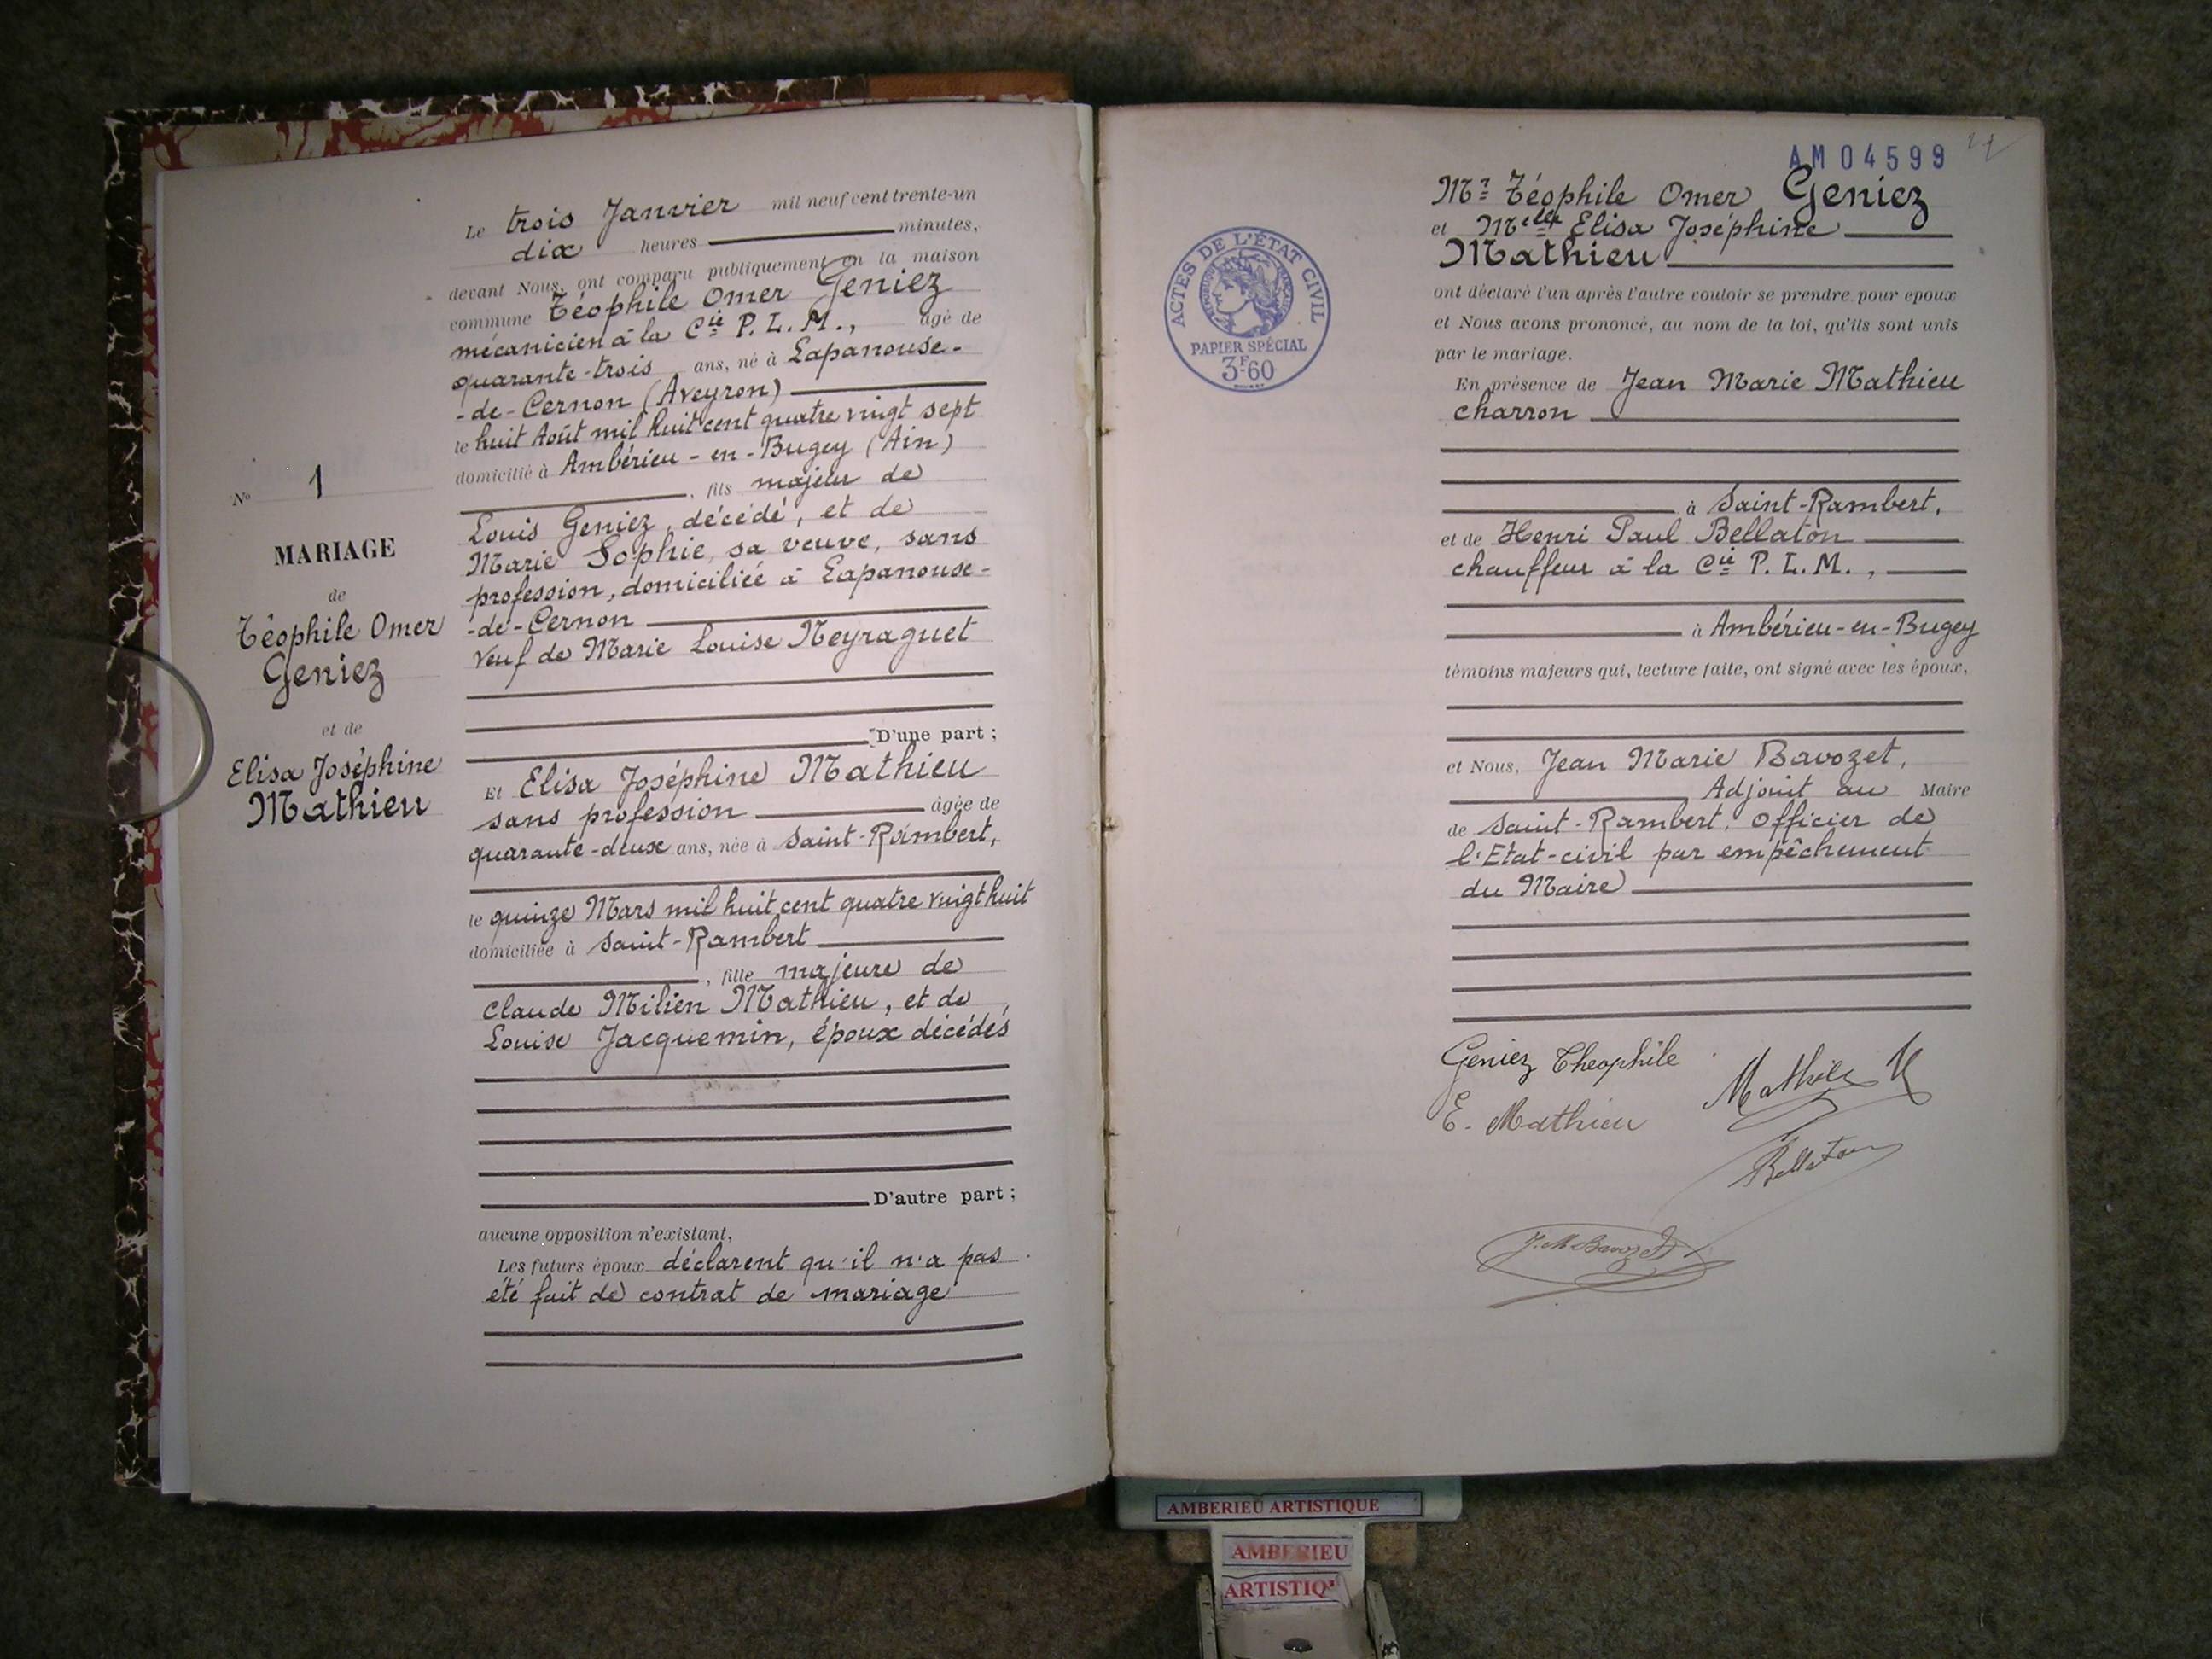 Le trois Janvier mil neuf cent trente-un
dix heures minutes,
devant Nous, ont comparu publiquement en la maison
commune Téophile Omer Geniez
mécanicien à la Cie P. L. M., âgé de
quarante-trois ans, né à Lapanouse-
-de-Cernon (Aveyron)
le huit Août mil huit cent quatre vingt sept
domicilié à Ambérieu-en-Bugey (Ain)
, fils majeur de
Louis Geniez, décédé, et de
Marie Sophie, sa veuve, sans
profession, domiciliée à Lapanouse-
-de-Cernon
Veuf de Marie Louise Neyraguet
D'une part ;
Et Elisa Joséphine Mathieu
sans profession âgée de
quarante-deux ans, née à Saint-Rambert,
le quinze Mars mil huit cent quatre vingt huit
domiciliée à Saint-Rambert
, fille majeure de
Claude Milien Mathieu, et de
Louise Jacquemin, époux décédés
D'autre part ;
aucune opposition n'existant,
Les futurs époux déclarent qu'il n'a pas
été fait de contrat de mariage
No 1
MARIAGE
de
Téophile Omer
Geniez
et de
Elisa Joséphine
Mathieu
AM04599
ACTES DE L'ÉTAT CIVIL
PAPIER SPÉCIAL
3F60
Mr Téophile Omer Geniez
et Melle Elisa Joséphine
Mathieu
ont déclaré l'un après l'autre vouloir se prendre pour epoux
et Nous avons prononcé, au nom de la loi, qu'ils sont unis
par le mariage.
En présence de Jean Marie Mathieu
charron
à Saint-Rambert,
et de Henri Paul Bellaton
chauffeur à la Cie P. L. M.,
à Ambérieu-en-Bugey
témoins majeurs qui, lecture faite, ont signé avec les époux,
et Nous, Jean Marie Bavozet,
Adjoint au Maire
de Saint-Rambert, Officier de
l'Etat-civil par empêchement
du Maire
Geniez Theophile
E. Mathieu
Bellaton
J.M Bavozet
AMBERIEU ARTISTIQUE
AMBERIEU
ARTISTIQ